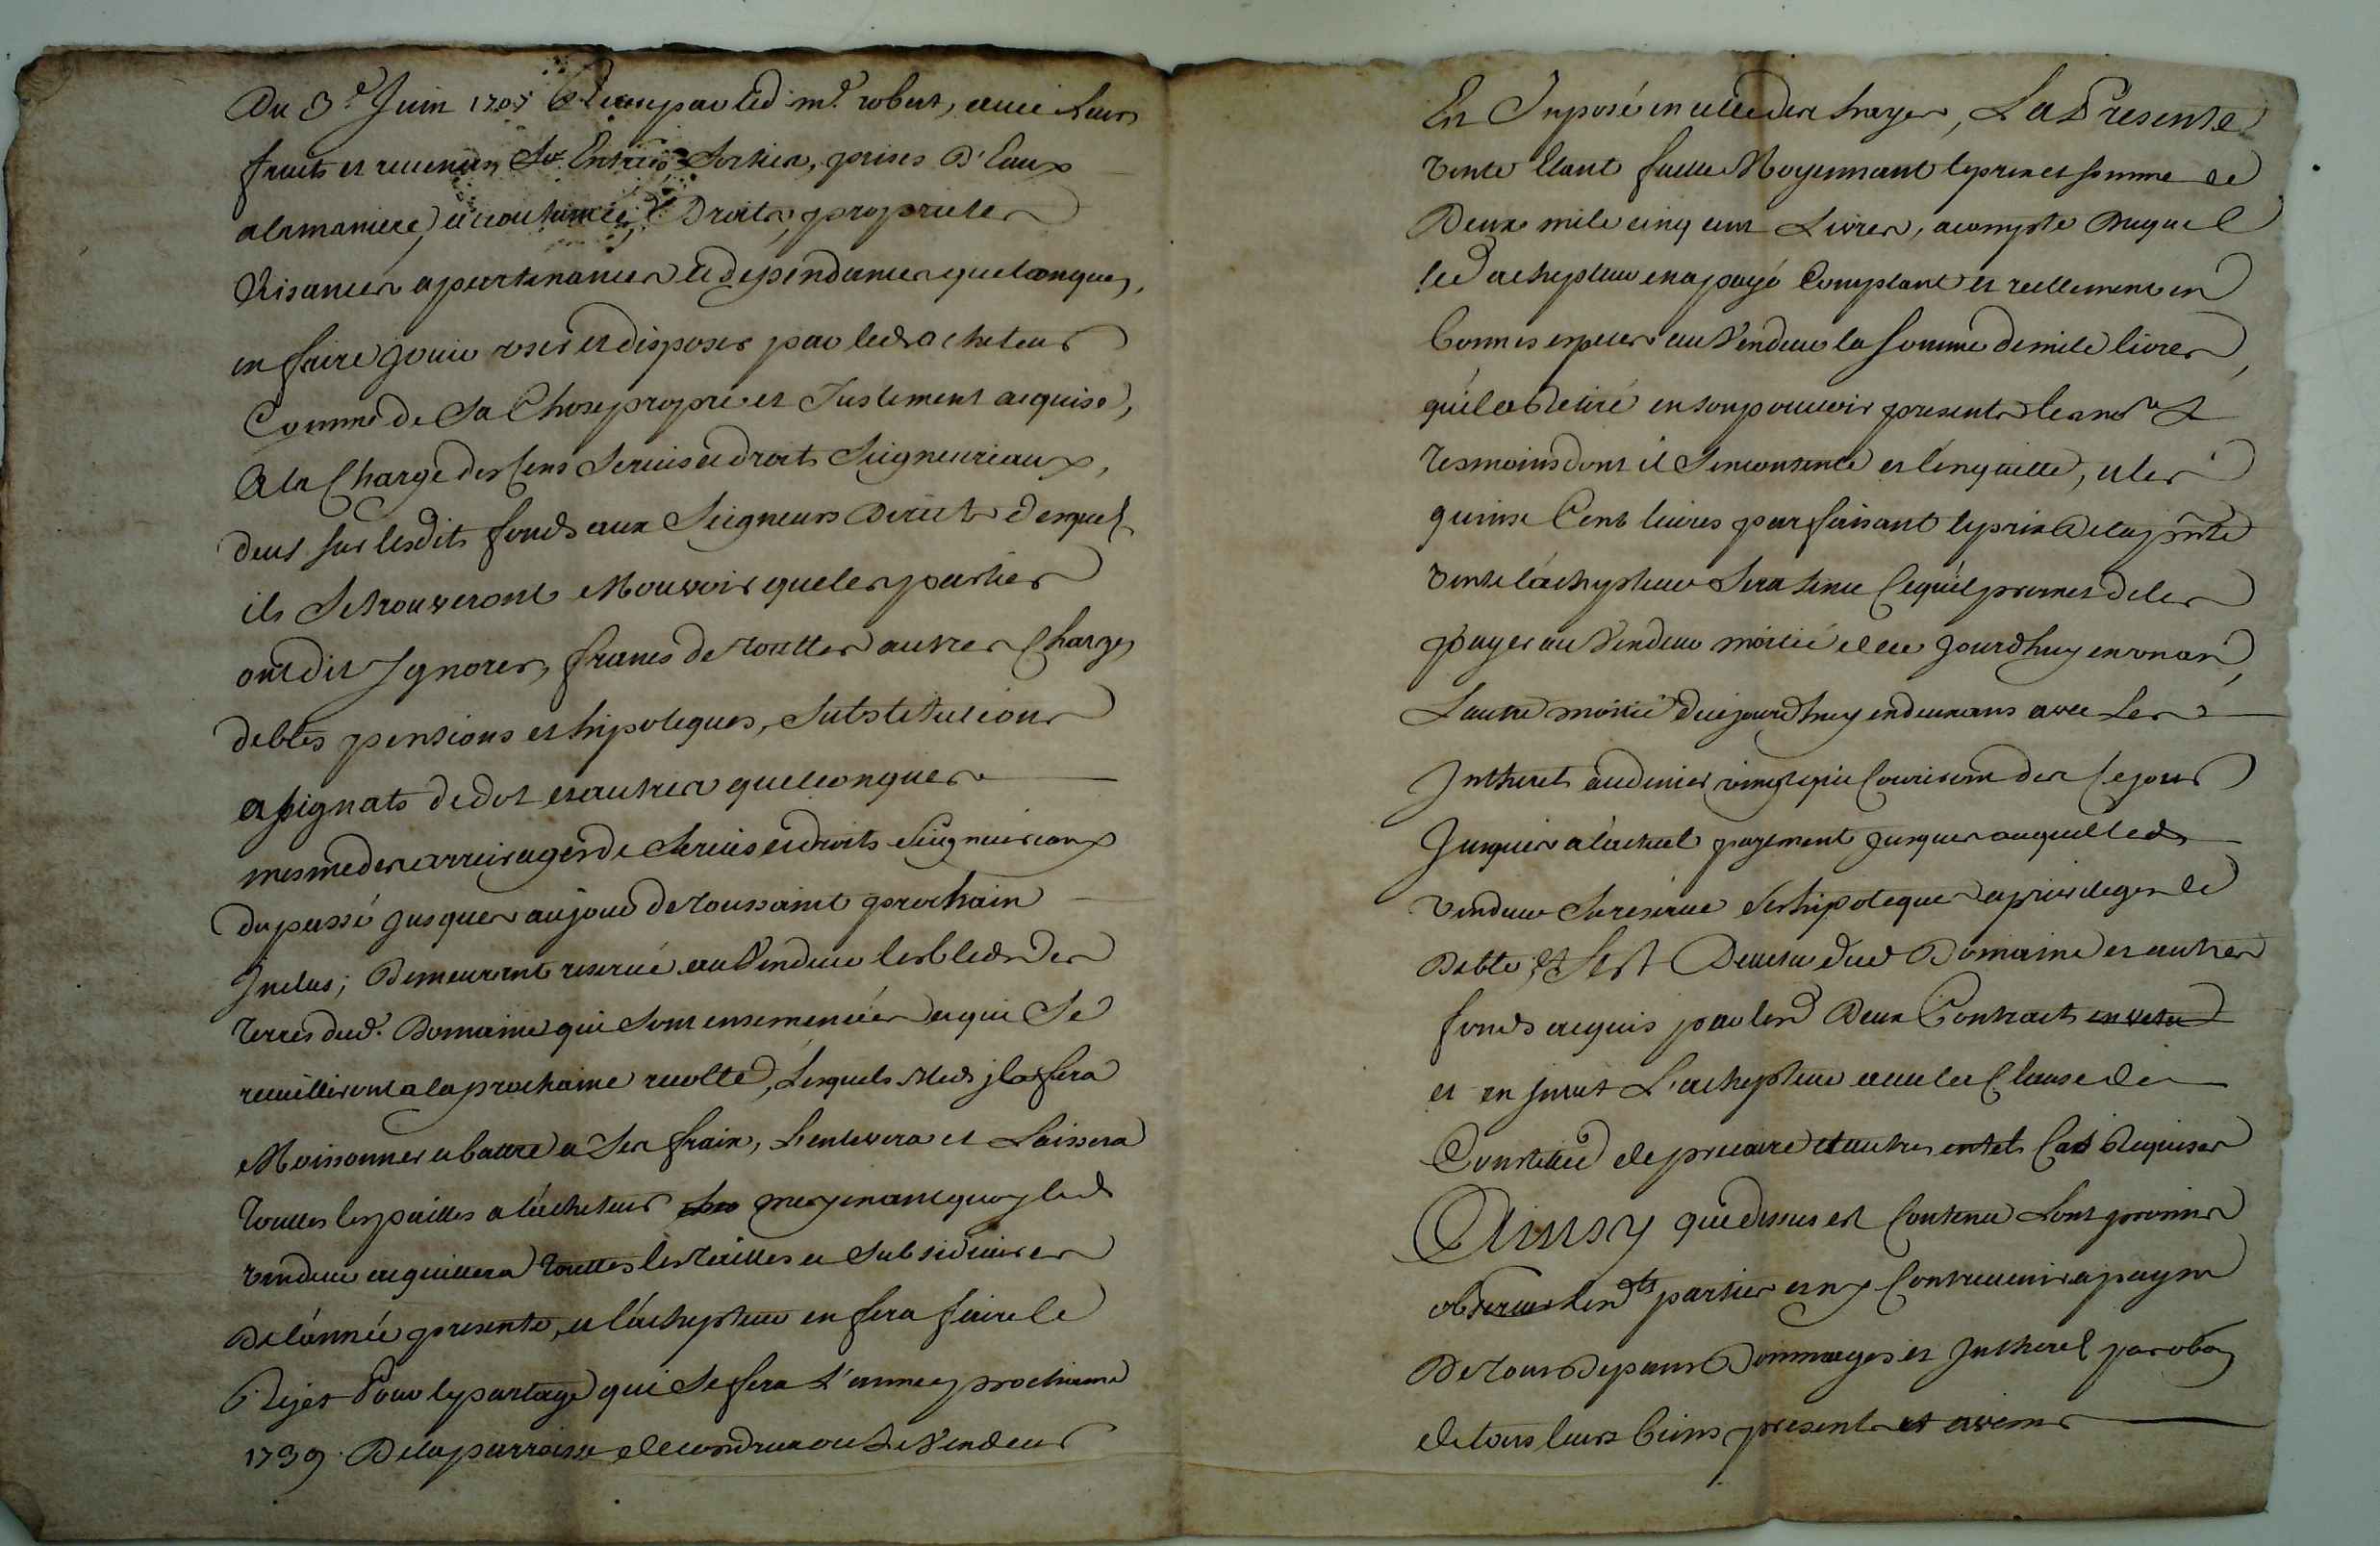 Du 3e Juin 1705 Receu par led. me. robert, avec Leurs
fruits et revenus, Entrées Sorties, prises D'Eaux
alamaniere accoutumée, Droits, proprietes
Aisances apartenances et dependances quelconques,
en faire jouir user et disposer par led acheteur
Comme de Sa Chose propre et Justement acquise,
A la Charge des Cens Servis et droits Seigneuriaux,
deus sur lesdits fonds aux Seigneurs Directs desquels
ils Setrouveront Mouvoir queles parties
ont dit Ignorer, francs de touttes autres Charges
debtes pensions et hipoteques, Substitutions
assignats dedot et autres quelconques
mesme des arreirages de Servis et droits Seigneuriaux
du passé jusques aujour de toussaint prochain
Inclus; Demeurant reservé au Vendeur les bleds des
terres dud. Domaine qui sont ensemencées et qui Se
recuilliront a la prochaine recolte, Lesquels bleds il fera
Moissonner et battre a Ses frais, L'enlevera et Laissera
touttes les pailles a l'acheteur moyenant quoy led
vendeur acquittera touttes les tailles et Subsidiaires
De l'année presente, et l'achepteur en fera faire le
Rejet Pour le partage qui Se fera L'année prochaine
1739. De la parroisse de condrieu ou Le Vendeur
Est Imposé en acced, La Presente
Vente Etant faitte Moyennant leprix et somme de
Deux mile cinq cent Livres, acompte Duquel
led achepteur en a payé Comptant et reellement en
bonnes especes au Vendeur la somme de mile livres,
qu'il a Retiré en son pouvoir presents les nores &
tesmoins dont il Sencontente et l'enquitte, et les
quinse Cent livres parfaisant leprix De la pnte
Vente l'achepteur Sera tenu Cequ'il promet deles
payer au Vendeur moitié dece jourdhuy en un an,
L'autre moitié dece jourdhuy endeux ans avec Les
Intherets audenier vingt qui Courriront des Cejour
Jusques a l'actuel payement jusques auquel led
vendeur Sereserve Ses hipoteques et privileges de
Debte; & Sest Devetu dud Domaine et autres
fonds acquis par lesd Deux Contracts en vetu
et en invet L'achepteur avec les Clauses de
Constitut de precaire et autres entels Cas Requises
Ainsy que dessus est Contenu Sont promis
observer lesdts parties et n'y Contrevenir apayne
De tous depans Dommages et Intherets par obon
de tous leurs biens presents et avenir